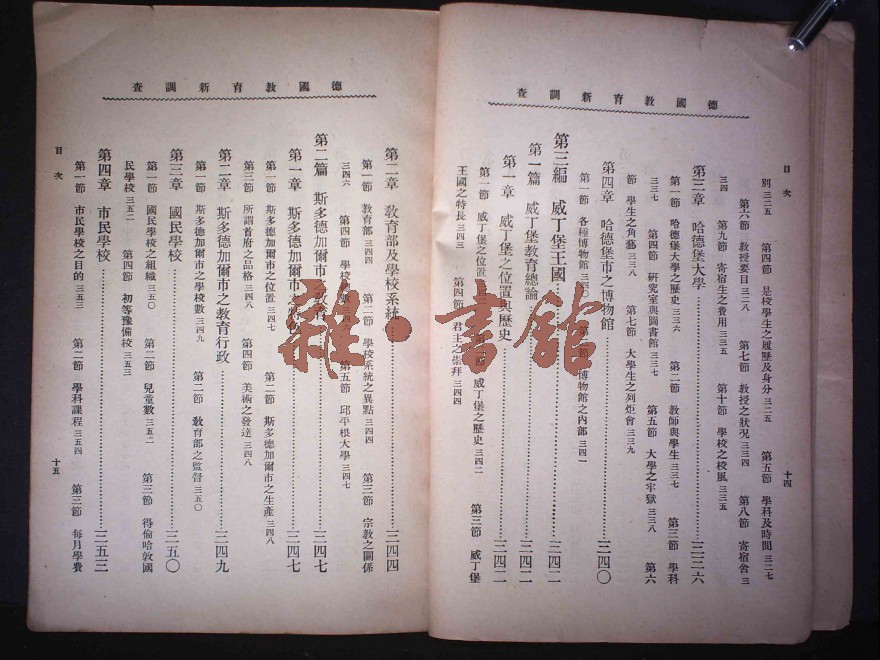 德國教育新調查
目次
十四
別三二五 第四節 是校學生之履歷及身分三二五 第五節 學科及時間三二七
第六節 教授要目三二八 第七節 教授之狀況三三四 第八節 寄宿舍三
三四 第九節 寄宿生之費用三三五 第十節 學校之校風三三五
第三章 哈德堡大學…三三六
第一節 哈德堡大學之歷史三三六 第二節 教師與學生三三七 第三節 學科
三三七 第四節 研究室與圖書館三三七 第五節 大學之牢獄三三八 第六
節 學生之角藝三三八 第七節 大學生之列炬會三三九
第四章 哈德堡市之博物館…三四〇
第一節 各種博物館三四 博物館之內部三四一
第三編 威丁堡王國…三四二
第一篇 威丁堡教育總論…三四二
第一章 威丁堡之位置與歷史…三四二
第一節 威丁堡之位置 威丁堡之歷史三四二 第三節 威丁堡
王國之特長三四三 第四節 君主之崇拜三四四
德國教育新調查
第二章 教育部及學校系統…三四四
第一節 教育部三四四 第二節 學校系統之異點三四四 第三節 宗教之關係
三四六 第四節 學校 第五節 邱平根大學三四七
第二篇 斯多德加爾市 教育…三四七
第一章 斯多德加爾市之特色…三四七
第一節 斯多德加爾市之位置三四七 第二節 斯多德加爾市之生產三四八
第三節 所謂首府之品格三四八 第四節 美術之發達三四八
第二章 斯多德加爾市之教育行政…三四九
第一節 斯多德加爾市之學校數三四九 第二節 教育部之監督三五〇
第三章 國民學校…三五〇
第一節 國民學校之組織三五〇 第二節 兒童數三五二 第三節 得倫哈敦國
民學校三五二 第四節 初等豫備校三五三
第四章 市民學校…三五三
第一節 市民學校之目的三五三 第二節 學科課程三五四 第三節 每月學費
目次
十五
雜·書館